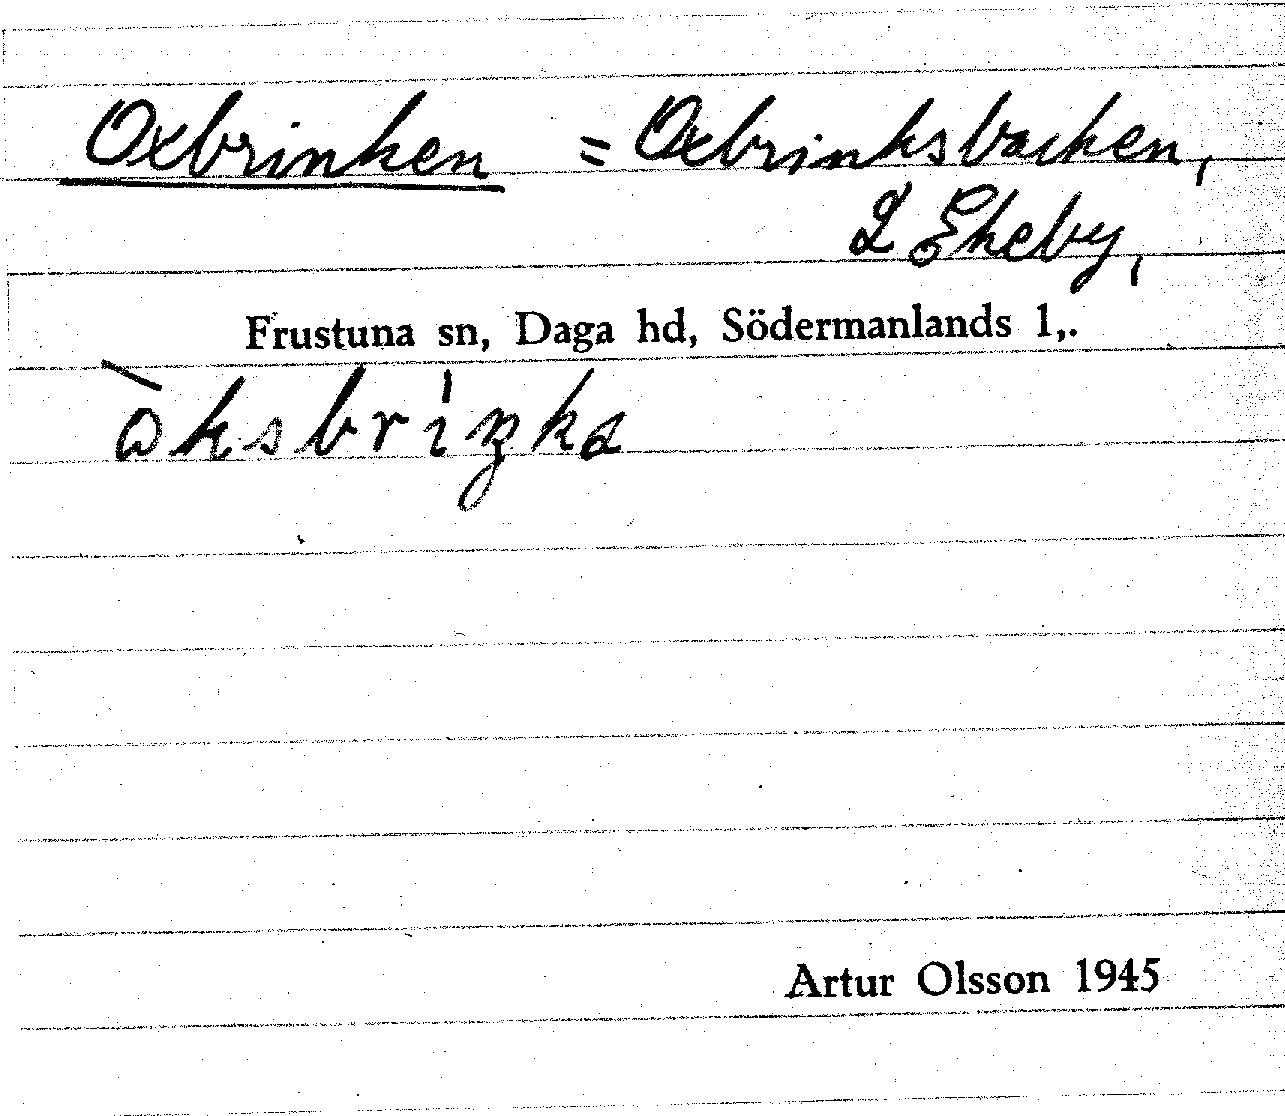 Oxbrinken = Oxbrinksbacken,
L Ekeby,
Frustuna sn, Daga hd, Södermanlands l,.
Artur Olsson 1945